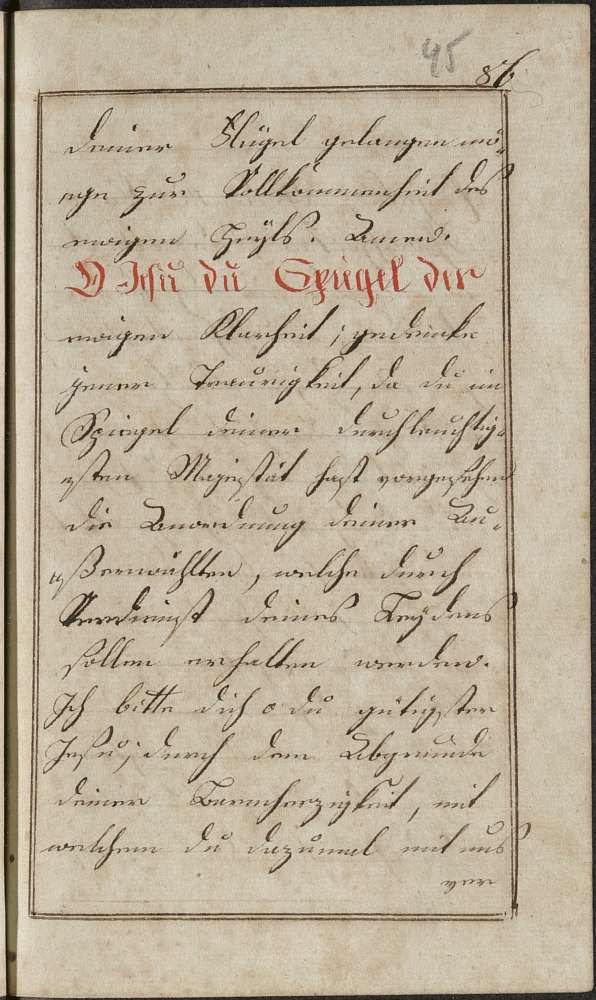 45
87
deiner Flügel gelangen mö-
ege zur Vollkommenheit des
ewigen Heyls. Amen.
O Jesu du Spiegel der
ewigen Klarheit; gedencke
jener Traurigkeit, da du im
Spiegel deiner durchleuchtig-
esten Majestät hast vorgesehen
die Anordnung deiner Au-
ußerwählten, welche durch
Verdienst deines Leydens
sollen erhalten werden.
Ich bitte dich o du gütigster
Jesu; durch dem Abgrunde
deiner Barmherzigkeit, mit
welchem du dazumal mit uns
ver